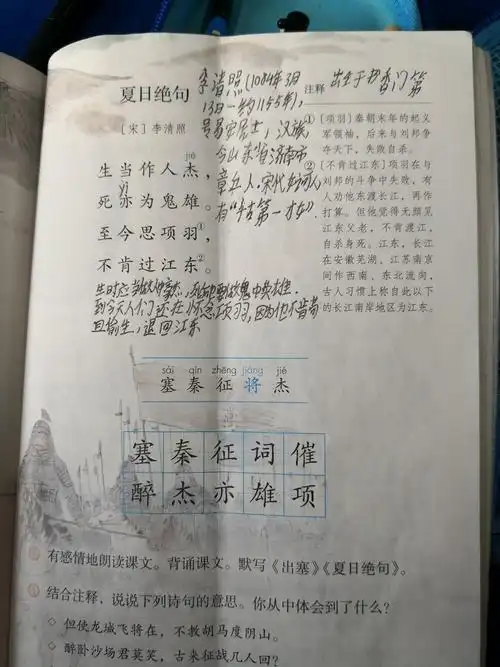 夏日绝句
[宋]李清照
李清照(1084年3月
13日－约1155年),
号易安居士，汉族
今山东省济南市
章丘人.宋代女词人
有“千古第一才女”.
出生于书香门第
jié
生当作人杰，
yì
死亦为鬼雄。
至今思项羽①，
不肯过江东②。
到今天人们还在怀念项羽,因为他不肯苟
且偷生,退回江东
注释
①[项羽]秦朝末年的起义
军领袖，后来与刘邦争
夺天下，失败自杀。
②[不肯过江东]项羽在与
刘邦的斗争中失败，有
人劝他东渡长江，再作
打算。但他觉得无颜见
江东父老，不肯渡江，
自杀身死。江东，长江
在安徽芜湖、江苏南京
间作西南、东北流向，
古人习惯上称自此以下
的长江南岸地区为江东。
sài qín zhēng jiàng jié
塞 秦 征 将 杰
塞 秦 征 词 催
醉 杰 亦 雄 项
有感情地朗读课文。背诵课文。默写《出塞》《夏日绝句》。
结合注释，说说下列诗句的意思。你从中体会到了什么？
◇ 但使龙城飞将在，不教胡马度阴山。
◇ 醉卧沙场君莫笑，古来征战几人回？